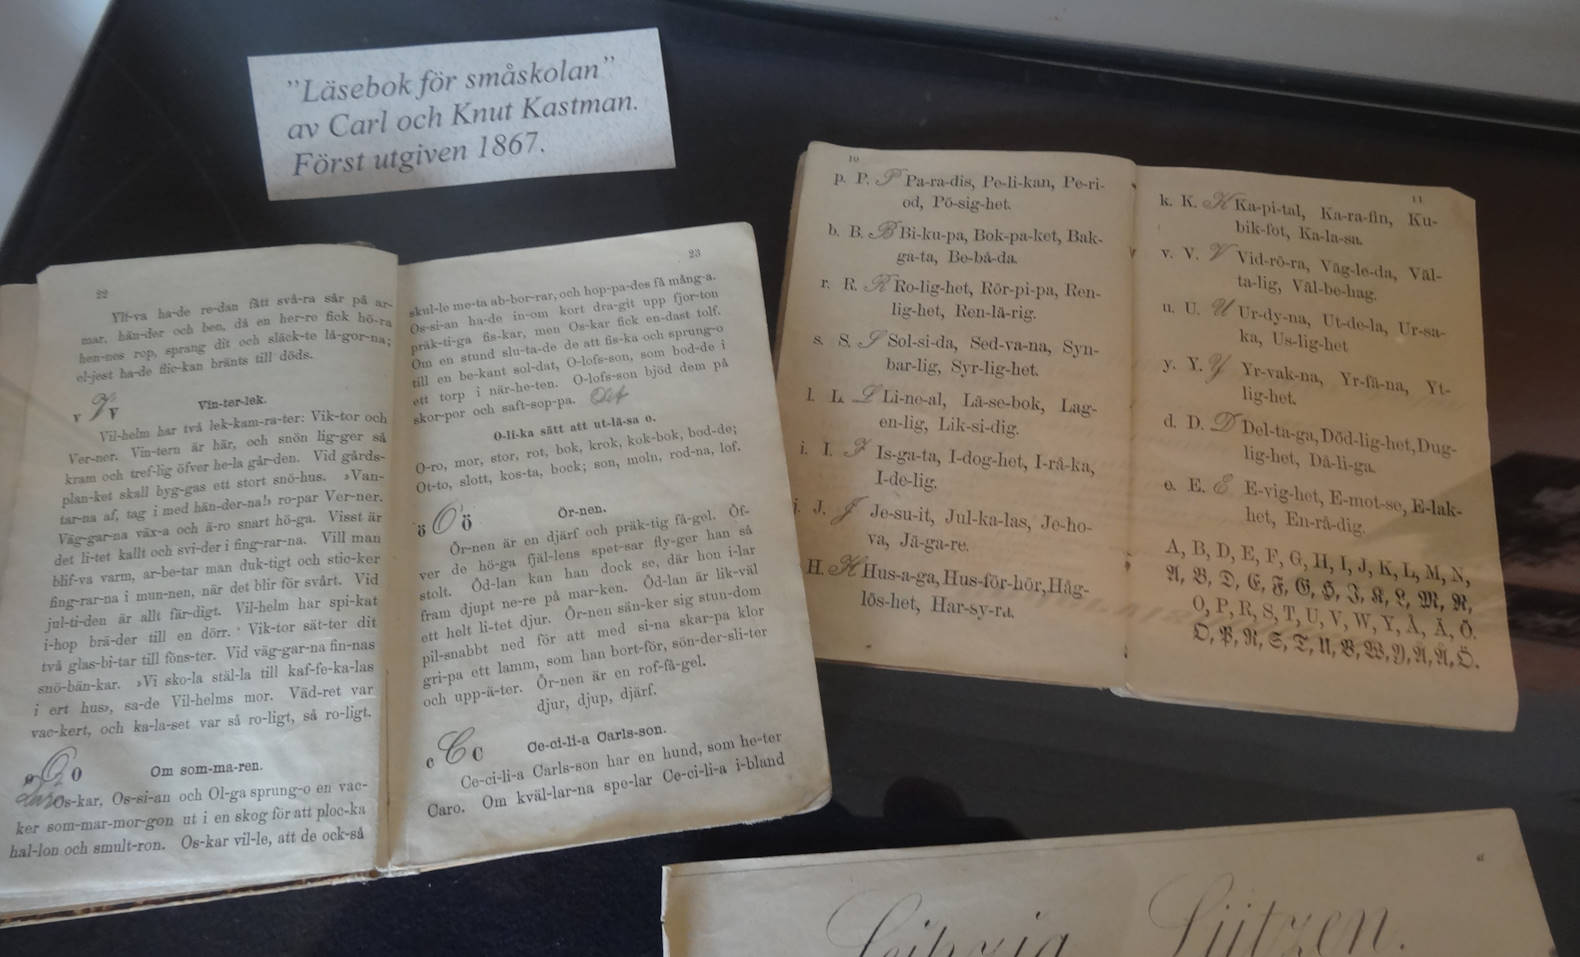 ”Läsebok för småskolan”
av Carl och Knut Kastman.
Först utgiven 1867.
22
Ylf-va ha-de re-dan fått svå-ra sår på ar-
mar, hän-der och ben, då en her-re fick hö-ra
hen-nes rop, sprang dit och släck-te lå-gor-na;
el-jest ha-de flic-kan bränts till döds.
v V V
Vin-ter-lek.
Vil-helm har två lek-kam-ra-ter: Vik-tor och
Ver-ner. Vin-tern är här, och snön lig-ger så
kram och tref-lig öfver he-la går-den. Vid gårds-
plan-ket skall byg-gas ett stort snö-hus. »Van-
tar-na af, tag i med hän-der-na!» ro-par Ver-ner.
Väg-gar-na väx-a och ä-ro snart hö-ga. Visst är
det li-tet kallt och svi-der i fing-rar-na. Vill man
blif-va varm, ar-be-tar man duk-tigt och stic-ker
fing-rar-na i mun-nen, när det blir för svårt. Vid
jul-ti-den är allt fär-digt. Vil-helm har spi-kat
i-hop brä-der till en dörr. Vik-tor sät-ter dit
två glas-bi-tar till föns-ter. Vid väg-gar-na fin-nas
snö-bän-kar. »Vi sko-la stäl-la till kaf-fe-ka-las
i ert hus», sa-de Vil-helms mor. Väd-ret var
vac-kert, och ka-la-set var så ro-ligt, så ro-ligt.
o O O
Om som-ma-ren.
Os-kar, Os-si-an och Ol-ga sprung-o en vac-
ker som-mar-mor-gon ut i en skog för att ploc-ka
hal-lon och smult-ron. Os-kar vil-le, att de ock-så
23
skul-le me-ta ab-bor-rar, och hop-pa-des få mång-a.
Os-si-an ha-de in-om kort dra-git upp fjor-ton
präk-ti-ga fis-kar, men Os-kar fick en-dast tolf.
Om en stund slu-ta-de de att fis-ka och sprung-o
till en be-kant sol-dat, O-lofs-son, som bod-de i
ett torp i när-he-ten. O-lofs-son bjöd dem på
skor-por och saft-sop-pa.
O-li-ka sätt att ut-lä-sa o.
O-ro, mor, stor, rot, bok, krok, kok-bok, bod-de;
Ot-to, slott, kos-ta, bock; son, moln, rod-na, lof.
ö Ö Ö
Ör-nen.
Ör-nen är en djärf och präk-tig få-gel. Öf-
ver de hö-ga fjäl-lens spet-sar fly-ger han så
stolt. Öd-lan kan han dock se, där hon i-lar
fram djupt ne-re på mar-ken. Öd-lan är lik-väl
ett helt li-tet djur. Ör-nen sän-ker sig stun-dom
pil-snabbt ned för att med si-na skar-pa klor
gri-pa ett lamm, som han bort-för, sön-der-sli-ter
och upp-ä-ter. Ör-nen är en rof-få-gel.
djur, djup, djärf.
c C C
Ce-ci-li-a Carls-son.
Ce-ci-li-a Carls-son har en hund, som he-ter
Caro. Om kväl-lar-na spe-lar Ce-ci-li-a i-bland
10
p. P. P Pa-ra-dis, Pe-li-kan, Pe-ri-
od, Pö-sig-het.
b. B. B Bi-ku-pa, Bok-pa-ket, Bak-
ga-ta, Be-bå-da.
r. R. R Ro-lig-het, Rör-pi-pa, Ren-
lig-het, Ren-lä-rig.
s. S. S Sol-si-da, Sed-va-na, Syn-
bar-lig, Syr-lig-het.
l. L. L Li-ne-al, Lä-se-bok, Lag-
en-lig, Lik-si-dig.
i. I. I Is-ga-ta, I-dog-het, I-rå-ka,
I-de-lig.
j. J. J Je-su-it, Jul-ka-las, Je-ho-
va, Jä-ga-re.
H. H Hus-a-ga, Hus-för-hör, Håg-
lös-het, Har-sy-ra.
11
k. K. K Ka-pi-tal, Ka-ra-fin, Ku-
bik-fot, Ka-la-sa.
v. V. V Vid-rö-ra, Väg-le-da, Väl-
ta-lig, Väl-be-hag.
u. U. U Ur-dy-na, Ut-de-la, Ur-sa-
ka, Us-lig-het
y. Y. Y Yr-vak-na, Yr-fä-na, Yt-
lig-het.
d. D. D Del-ta-ga, Död-lig-het, Dug-
lig-het, Då-li-ga.
e. E. E E-vig-het, E-mot-se, E-lak-
het, En-rå-dig.
A, B, D, E, F, G, H, I, J, K, L, M, N,
A, B, D, E, F, G, H, I, K, L, M, N,
O, P, R, S, T, U, V, W, Y, Å, Ä, Ö.
O, P, R, S, T, U, V, W, Y, Å, Ä, Ö.
Leipzig Lützen.